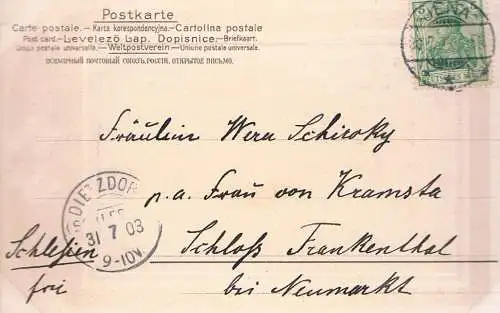 Postkarte
Carte postale. — Karta korespondencyjna. — Cartolina postale
Post card. — Levelező Lap. Dopisnice. — Briefkaart.
Union postale universelle. — Weltpostverein — Unione postale universale.
ВСЕМІРНЫЙ ПОЧТОВЫЙ СОЮЗЪ. РОССІЯ. ОТКРЫТОЕ ПИСЬМО.
JENA
Fräulein Wera Schiroky
p.a. Frau von Kramsta
DIETZDORF
31 7 03
9-10V.
Schlesien
Schloß Frankenthal
frei
bei Neumarkt